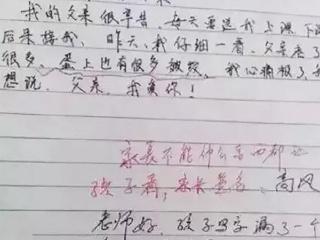 我的父亲很辛苦，每天要送我上课，下
后来接我，昨天，我仔细一看，父亲老了
很多，蛋上也有很多皱纹，我心痛极了，
想说，父亲，我爱你！
家长不能什么言西都让
孩子看，家长签名，高风
老师好，孩子写字漏了一个